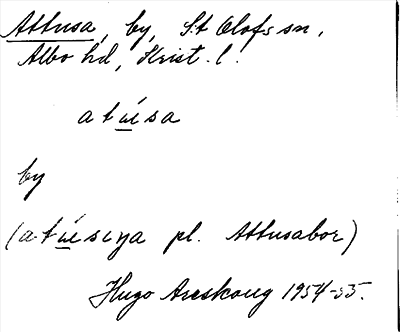 Attusa, by, S:t Olofs sn,
Albo hd, Krist. l.
atúsa
by
(atúseɳa pl. Attusabor)
Hugo Areskoug 1954-55.